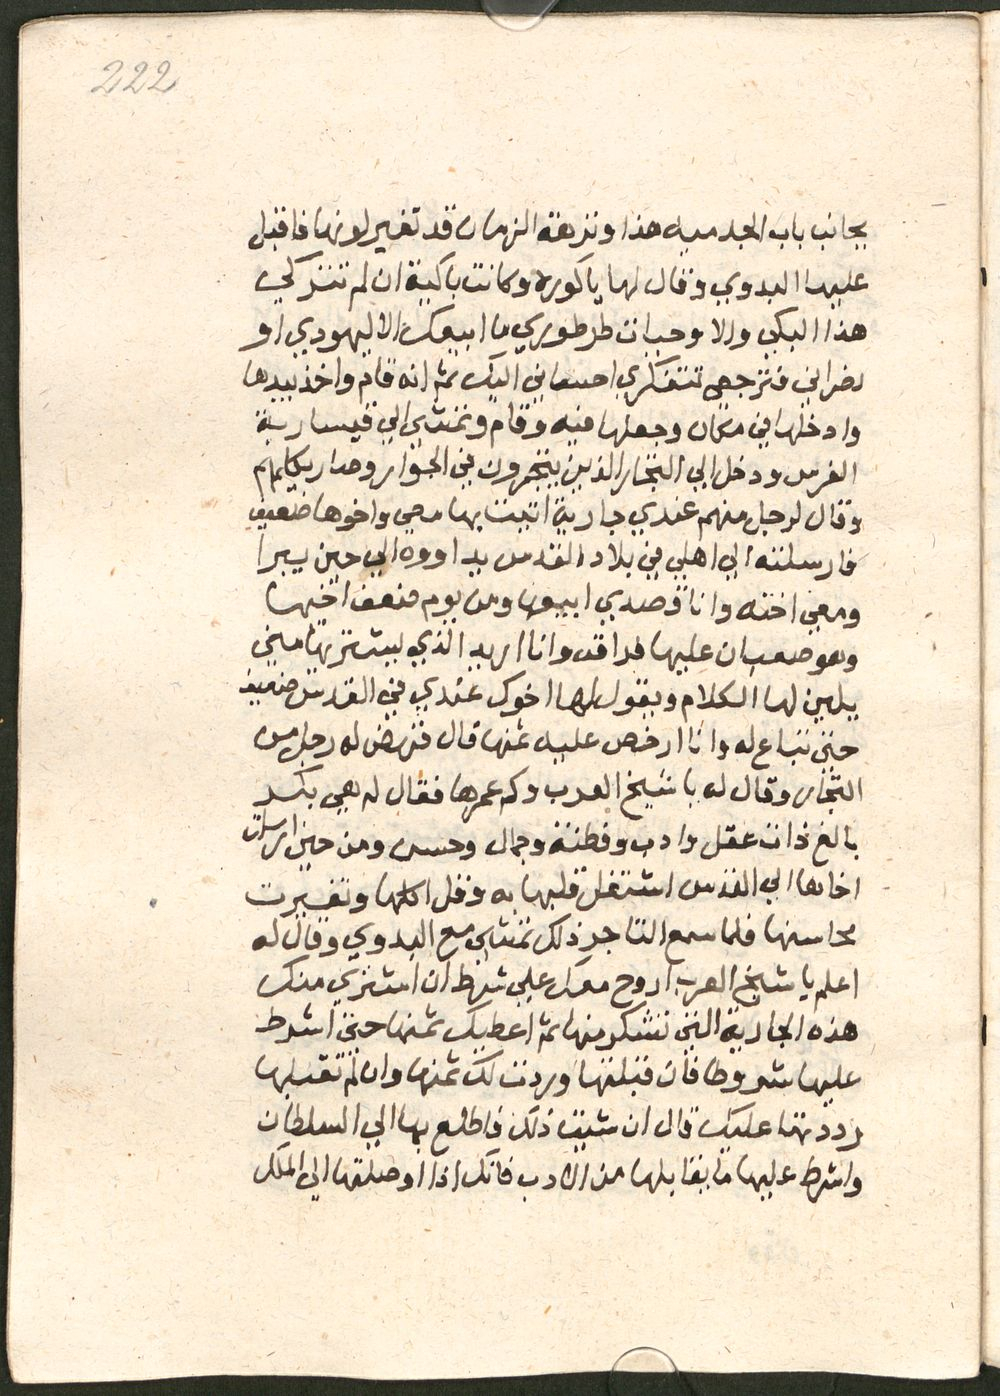 222
بجانب باب الجدميه هذا ونزهة الزمان قد تغير لونها فاقبل
عليها البدوي وقال لها يا كوره وكانت باكية ان لم تتركي
هذا البكي والا وحيات طرطوري ما ابيعك الا ليهودي او
نصراني فترجعي تتفكري احساني اليك ثم انه قام واخذ بيدها
وادخلها في مكان وجعلها فيه وقام وتمشي الي قيسارية
الفرس ودخل الي التجار الذين يتجرون في الجوار وصار يكلمهم
وقال لرجل منهم عندي جارية اتيت بها معي واخوها ضعيف
فارسلته الي اهلي في بلاد القدس يداووه الي حين يبرا
ومعي اخته وانا قصدي ابيعها ومن يوم ضعف اخيها
وهو صعبان عليها فراقه وانا اريد الذي يشتريها مني
يلين لها الكلام ويقول لها اخوك عندي في القدس ضعيف
حتي تباع له وانا ارخص عليه ثمنها قال فنهض له رجل من
التجار وقال له يا شيخ العرب وكم عمرها فقال له هي بكر
بالغ ذات عقل وادب وفطنة وجمال وحسن ومن حين ارسلت
اخاها الي القدس اشتغل قلبها به وقل اكلها وتغيرت
محاسنها فلما سمع التاجر ذلك تمشي مع البدوي وقال له
اعلم يا شيخ العرب اروح معك علي شرط ان اشتري منك
هذه الجارية التي تشكر منها ثم اعطيك ثمنها حتي اشرط
عليها شروطا فان قبلتها وزنت لك ثمنها وان لم تقبلها
رددتها عليك قال ان شيت ذلك فاطلع بها الي السلطان
واشرط عليها ما يقابلها من الادب فانك اذا اوصلتها الي الملك